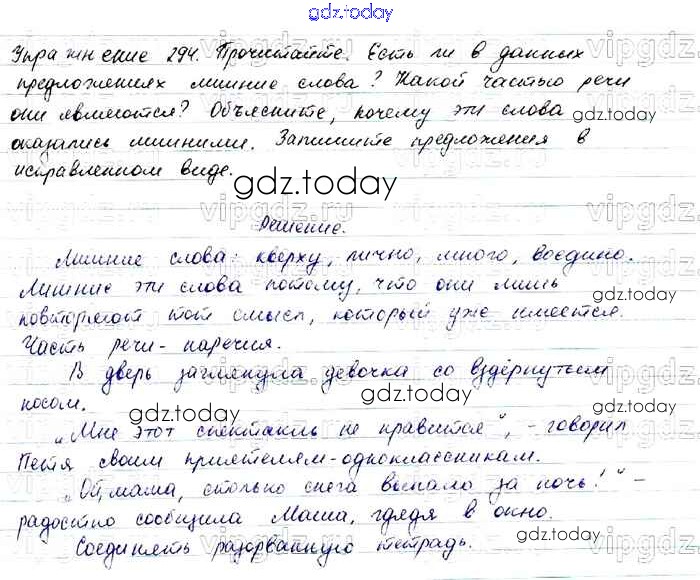 gdz.today
Упражнение 294. Прочитайте. Есть ли в данных
предложениях лишние слова? Какой частью речи
они являются? Объясните, почему эти слова
gdz.today
оказались лишними. Запишите предложения в
исправленном виде.
gdz.today
Решение.
Лишние слова: кверху, лично, много, воедино.
Лишние эти слова потому, что они лишь
gdz.today
повторяют тот смысл, который уже имеется.
Часть речи - наречия.
В дверь заглянула девочка со вздёрнутым
носом.
gdz.today
gdz.today
„Мне этот спектакль не нравится", - говорил
Петя своим приятелям-одноклассникам.
gdz.today
„Ой, мама, столько снега выпало за ночь!" -
радостно сообщила Маша, глядя в окно.
gdz.today
Соединять разорванную тетрадь.
vipgdz.ru